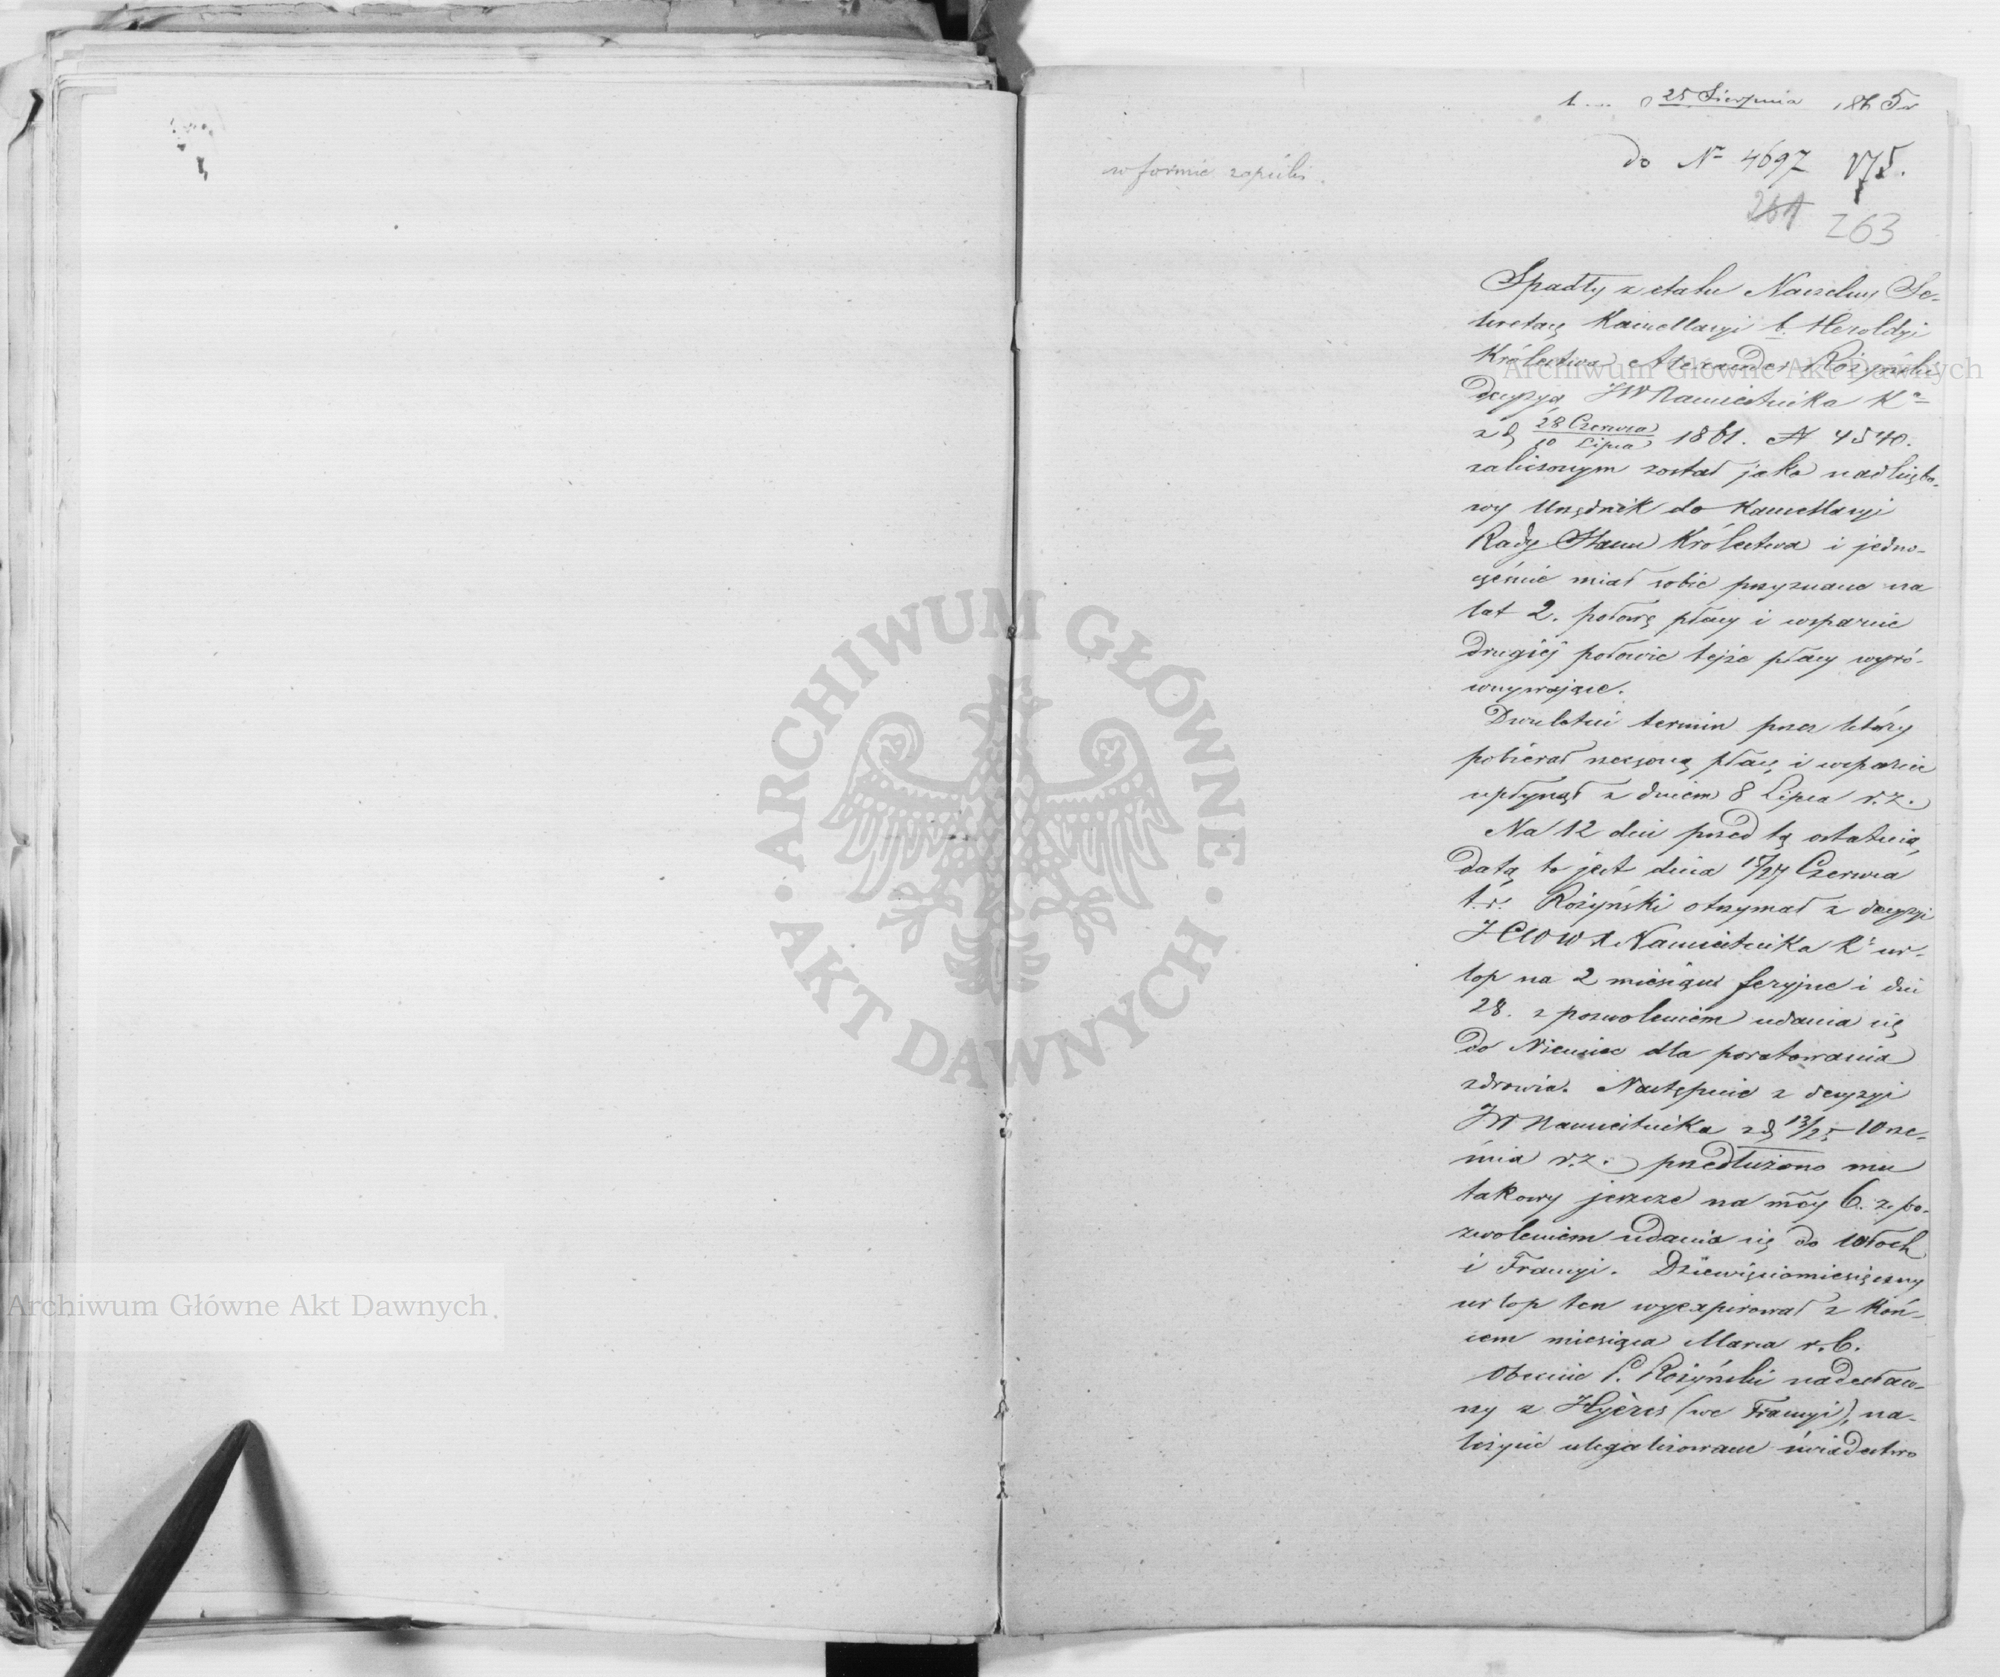 25 Sierpnia 1865 r
do № 4697
w formie zapiski.
261 263
Spadły z etatu Naczelny Se-
kretarz Kancellaryi b. Heroldyi
Królestwa Alexander Różyński
Decyzyą JW Namiestnika Kr
z d 28 Czerwca / 10 Lipca 1861. N 4540.
zaliczonym został jako nadliczbo-
wy Urzędnik do Kancellaryi
Rady Stanu Królestwa i jedno-
cześnie miał sobie przyznane na
lat 2. połowę płacy i wsparcie
drugiéj połowie tejże płacy wyró-
wnywające.
Dwuletni termin przez który
pobierał rzeczoną płacę i wsparcie
upłynął z dniem 8 Lipca r. z.
Na 12 dni przed tą ostatnią
datą to jest dnia 15/27 Czerwca
t. r. Różyński otrzymał z decyzyi
Namiestnika Kr ur-
lop na 2 miesiące feryjne i dni
28. z pozwoleniem udania się
do Niemiec dla poratowania
zdrowia. Następnie z decyzyi
JW Namiestnika z d 13/25 Wrze-
śnia r. z. przedłużono mu
takowy jeszcze na mcy 6. z po-
zwoleniem udania się do Włoch
i Francyi. Dziewięciomiesięczny
urlop ten wyexpirował z Koń-
cem miesiąca Marca r. b.
Obecnie P. Różyński nadesław-
szy z Hyères (we Francyi), na-
leżycie ulegalizowane świadectwo
Archiwum Główne Akt Dawnych
ARCHIWUM GŁÓWNE · AKT DAWNYCH ·
Archiwum Główne Akt Dawnych